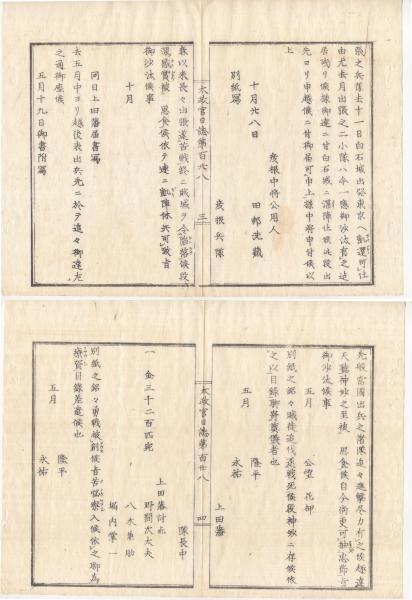 張之兵隊去十一日白石城出發東京へ凱還可仕
由尤去月出張之二小隊ハ今一應御沙汰有之迄
居殘リ候樣御達ニ付白石城ニ滯陣仕候此段出
先ヨリ申越候ニ付御届可申上樣中將申付候以
上
十月廿八日
彦根中將公用人
田部
別紙寫
彦根兵隊
太政官日誌第百廿八
三
春以来長々出張遂苦戰終ニ賊城ヲ今陷落候段
深感賞被 思食候依テ速ニ凱陣休兵可致旨
御沙汰候事
十月
同日上田藩届書寫
去五月中ヨリ越後表出兵先ニ於テ追々御達左
之通御座候
五月十九日御書附寫
先般當國出兵之諸隊追々進擊尽力有之候趣達
天聽神妙之至被 思食候自今彌更可抽忠節旨
御沙汰候事
五月
公望 花押
別紙之銘々賊徒追伐進戰死候段神妙ニ存候依
之以目録聊弔奠儀者也
五月
隆平
永祐
上田藩
太政官日誌第百廿八
四
隊長中
一 金三千二百匹宛
上田藩討死
野間次太夫
八木
堀内
別紙之銘々勇戰被創候者苦惱察入候依之聊為
療養目録差遣候也
五月
隆平
永祐